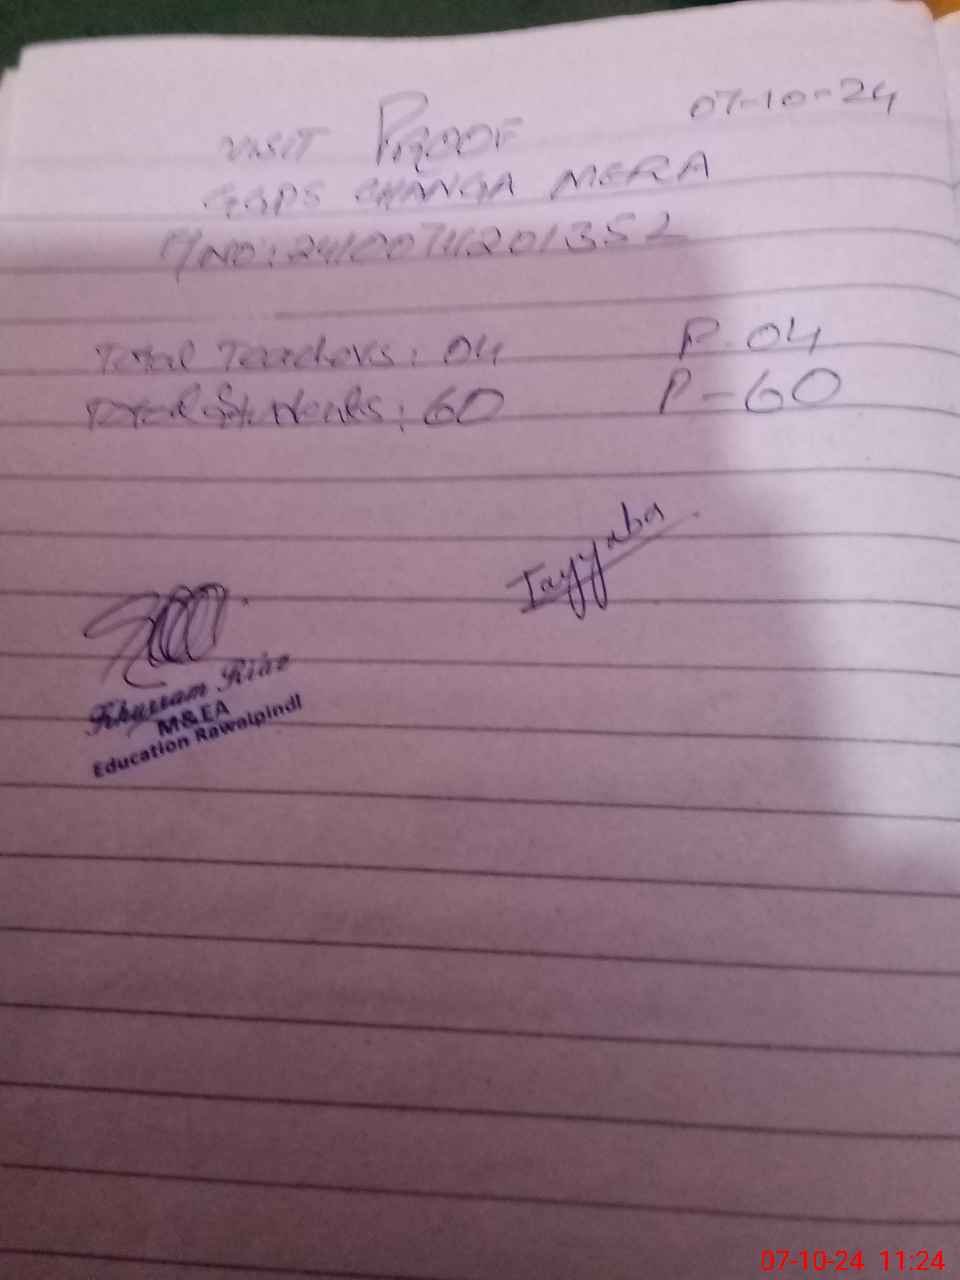 07-10-24
VISIT PROOF
GGPS CHANGA MERA
Total Teachers: 04 P. 04
Total Students: 60 P-60
Tayyaba
Khurram Riaz
M&EA
Education Rawalpindi
07-10-24 11:24